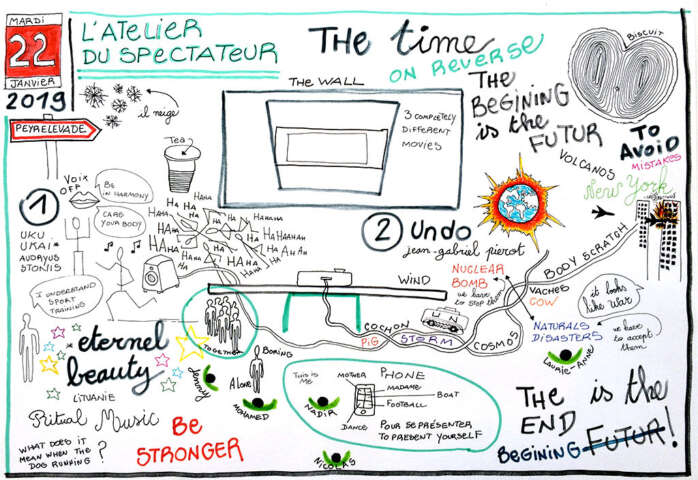 MARDI
22
JANVIER
2019
L'ATELIER
DU SPECTATEUR
THE time
ON REVERSE
BISCUIT
THE WALL
THE
BEGINING
is the
FUTUR
il neige
PEYRELEVADE
Tea
3 COMPLETELY
DIFFERENT
MOVIES
TO
AVOID
MISTAKES
VOLCANOS
New York
1
VOIX
OFF
BE
IN HARMONY
CARE
YOUR BODY
HAHA
HA HA
HAHA
HAHAHA
HA HA
HAHAHAHAH
HA
UKU
UKAI*
AUDRYUS
STONIS
I UNDERSTAND
SPORT
TRAINING
2 Undo
jean-gabriel pierot
NUCLEAR
BOMB
we have
to stop them
BODY SCRATCH
VACHES
COW
it looks
like war
WIND
UN
COCHON
PIG
STORM
COSMOS
NATURALS
DISASTERS
we have
to accept
them
LAURIE-ANNE
TOGETHER
eternel
beauty
LITUANIE
Jeremy
Alone
BORING
MOHAMED
THIS IS
ME
MOTHER
PHONE
MADAME
BOAT
FOOTBALL
NADIR
DANCE
POUR SE PRÉSENTER
TO PRESENT YOURSELF
NICOLAS
Ritual Music
WHAT DOES IT
MEAN WHEN THE
DOG RUNNING ?
BE
STRONGER
THE is the
END
BEGINING FUTUR!